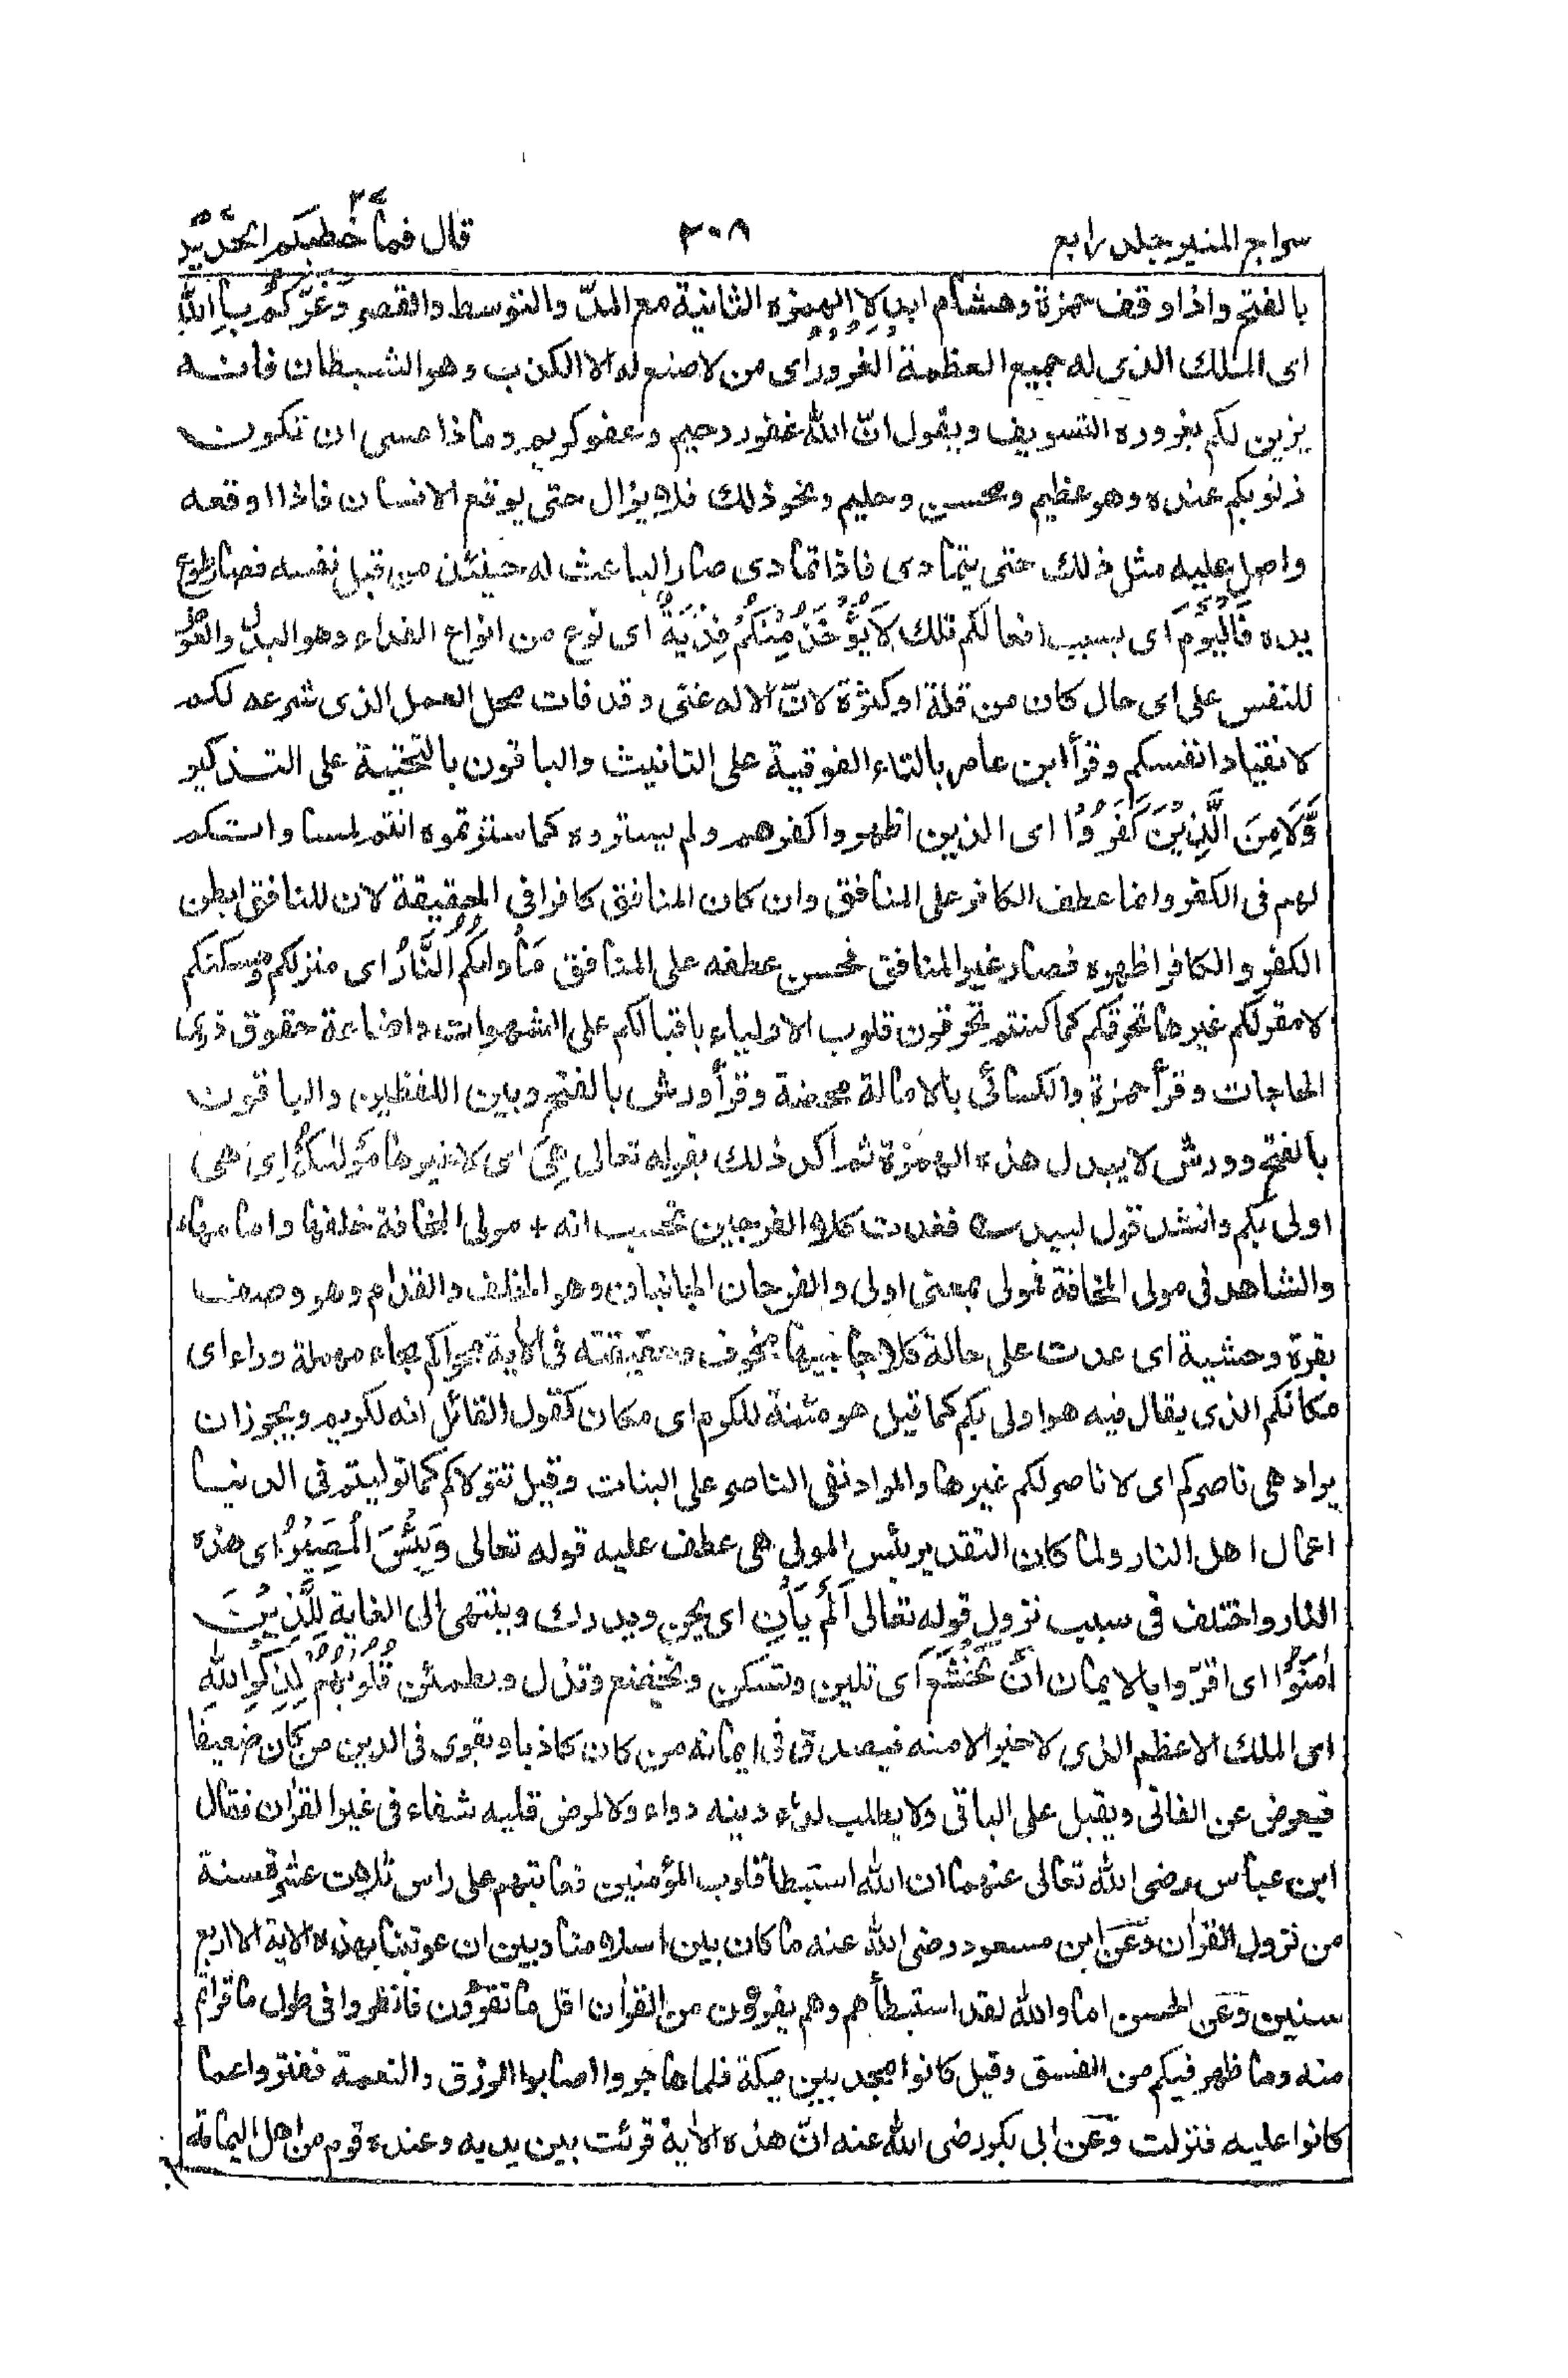 سراج المنير جلد رابع ۲۰۸ قال فما خطبكم ۲۷ الحديد ۵۷
بالفتح واذا وقف حمزة وهشام ابدلا الهمزة الثانية مع المدّ والتوسط والقصر وَغَرَّكُمْ بِاللّٰهِ
اى الملك الذى له جميع العظمة الْغَرُوْرُ اى من لا صنع له الا الكذب وهو الشيطان فانه
يزين لكم بغروره التسويف ويقول انّ اللّٰه غفور رحيم وعفو كريم وماذا عسى ان تكون
ذنوبكم عنده وهو عظيم ومحسن وحليم ونحو ذلك فلا يزال حتى يوقع الانسان فاذا اوقعه
واصل عليه مثل ذلك حتى يتمادى فاذا تمادى صار الباعث له حينئذ من قبل نفسه فصار طوع
يده فَالْيَوْمَ اى بسبب افعالكم تلك لَا يُؤْخَذُ مِنْكُمْ فِدْيَةٌ اى نوع من انواع الفداء وهو البدل والعوض
للنفس على اى حال كان من قلة او كثرة لانّ الاله غنى وقد فات محل العمل الذى شرعه لكم
لانقياد انفسكم وقرأ ابن عامر بالتاء الفوقية على التانيث والباقون بالتحتية على التذكير
وَّلَا مِنَ الَّذِيْنَ كَفَرُوْا اى الذين اظهروا كفرهم ولم يستروه كما سترتموه انتم لمساواتكم
لهم فى الكفر وانما عطف الكافر على المنافق وان كان المنافق كافرا فى الحقيقة لان المنافق ابطن
الكفر والكافر اظهره فصار غير المنافق فحسن عطفه على المنافق مَاْوٰىكُمُ النَّارُ اى منزلكم ومسكنكم
لا مقر لكم غيرها تحرقكم كما كنتم تحرقون قلوب الاولياء باقبالكم على الشهوات واضاعة حقوق ذوى
الحاجات وقرأ حمزة والكسائى بالامالة محضة وقرأ ورش بالفتح وبين اللفظين والباقون
بالفتح وورش لا يبدل هذه الهمزة ثم اكد ذلك بقوله تعالى هِىَ اى لا غيرها مَوْلٰىكُمْ اى هى
اولى بكم وانشد قول لبيد ؎ فغدت كلا الفرجين تحسب انه + مولى المخافة خلفها وامامها
والشاهد فى مولى المخافة فمولى بمعنى اولى والفرجان الجانبان وهو الخلف والقدام وهو وصف
بقرة وحشية اى عدت على حالة كلا جانبيها مخوف وحقيقته فى الأية محراكم بحاء مهملة وراء اى
مكانكم الذى يقال فيه هو اولى بكم كما قيل هو مئنة للكرم اى مكان كقول القائل انه لكريم ويجوز ان
يراد هى ناصركم اى لا ناصر لكم غيرها والمراد نفى الناصر على البتات وقيل تتولاكم كما توليتم فى الدنيا
اعمال اهل النار ولما كان التقدير بئس المولى هى عطف عليه قوله تعالى وَبِئْسَ الْمَصِيْرُ اى هذه
النار واختلف فى سبب نزول قوله تعالى اَلَمْ يَاْنِ اى يحن ويدرك وينتهى الى الغاية لِلَّذِيْنَ
اٰمَنُوْٓا اى اقرّوا بالايمان اَنْ تَخْشَعَ اى تلين وتسكن وتخضع وتذل وتطمئن قُلُوْبُهُمْ لِذِكْرِ اللّٰهِ
اى الملك الاعظم الذى لا خير الا منه فيصدق فى ايمانه من كان كاذبا ويقوى فى الدين من كان ضعيفا
فيعرض عن الفانى ويقبل على الباقى ولا يطلب لداء دينه دواء ولا لمرض قلبه شفاء فى غير القراٰن فقال
ابن عباس رضى اللّٰه تعالى عنهما ان اللّٰه استبطأ قلوب المؤمنين فعاتبهم على راس ثلاث عشرة سنة
من نزول القراٰن وعن ابن مسعود رضى اللّٰه عنه ما كان بين اسلامنا وبين ان عوتبنا بهذه الاية الا اربع
سنين وعن الحسن اما واللّٰه لقد استبطأهم وهم يقرؤن من القراٰن اقل ما تقرؤن فانظروا فى طول ما قرأتم
منه وما ظهر فيكم من الفسق وقيل كانوا مجدبين بمكة فلما هاجروا اصابوا الرزق والنعمة ففتروا عما
كانوا عليه فنزلت وعن ابى بكر رضى اللّٰه عنه انّ هذه الأية قرئت بين يديه وعنده قوم من اهل اليمامة